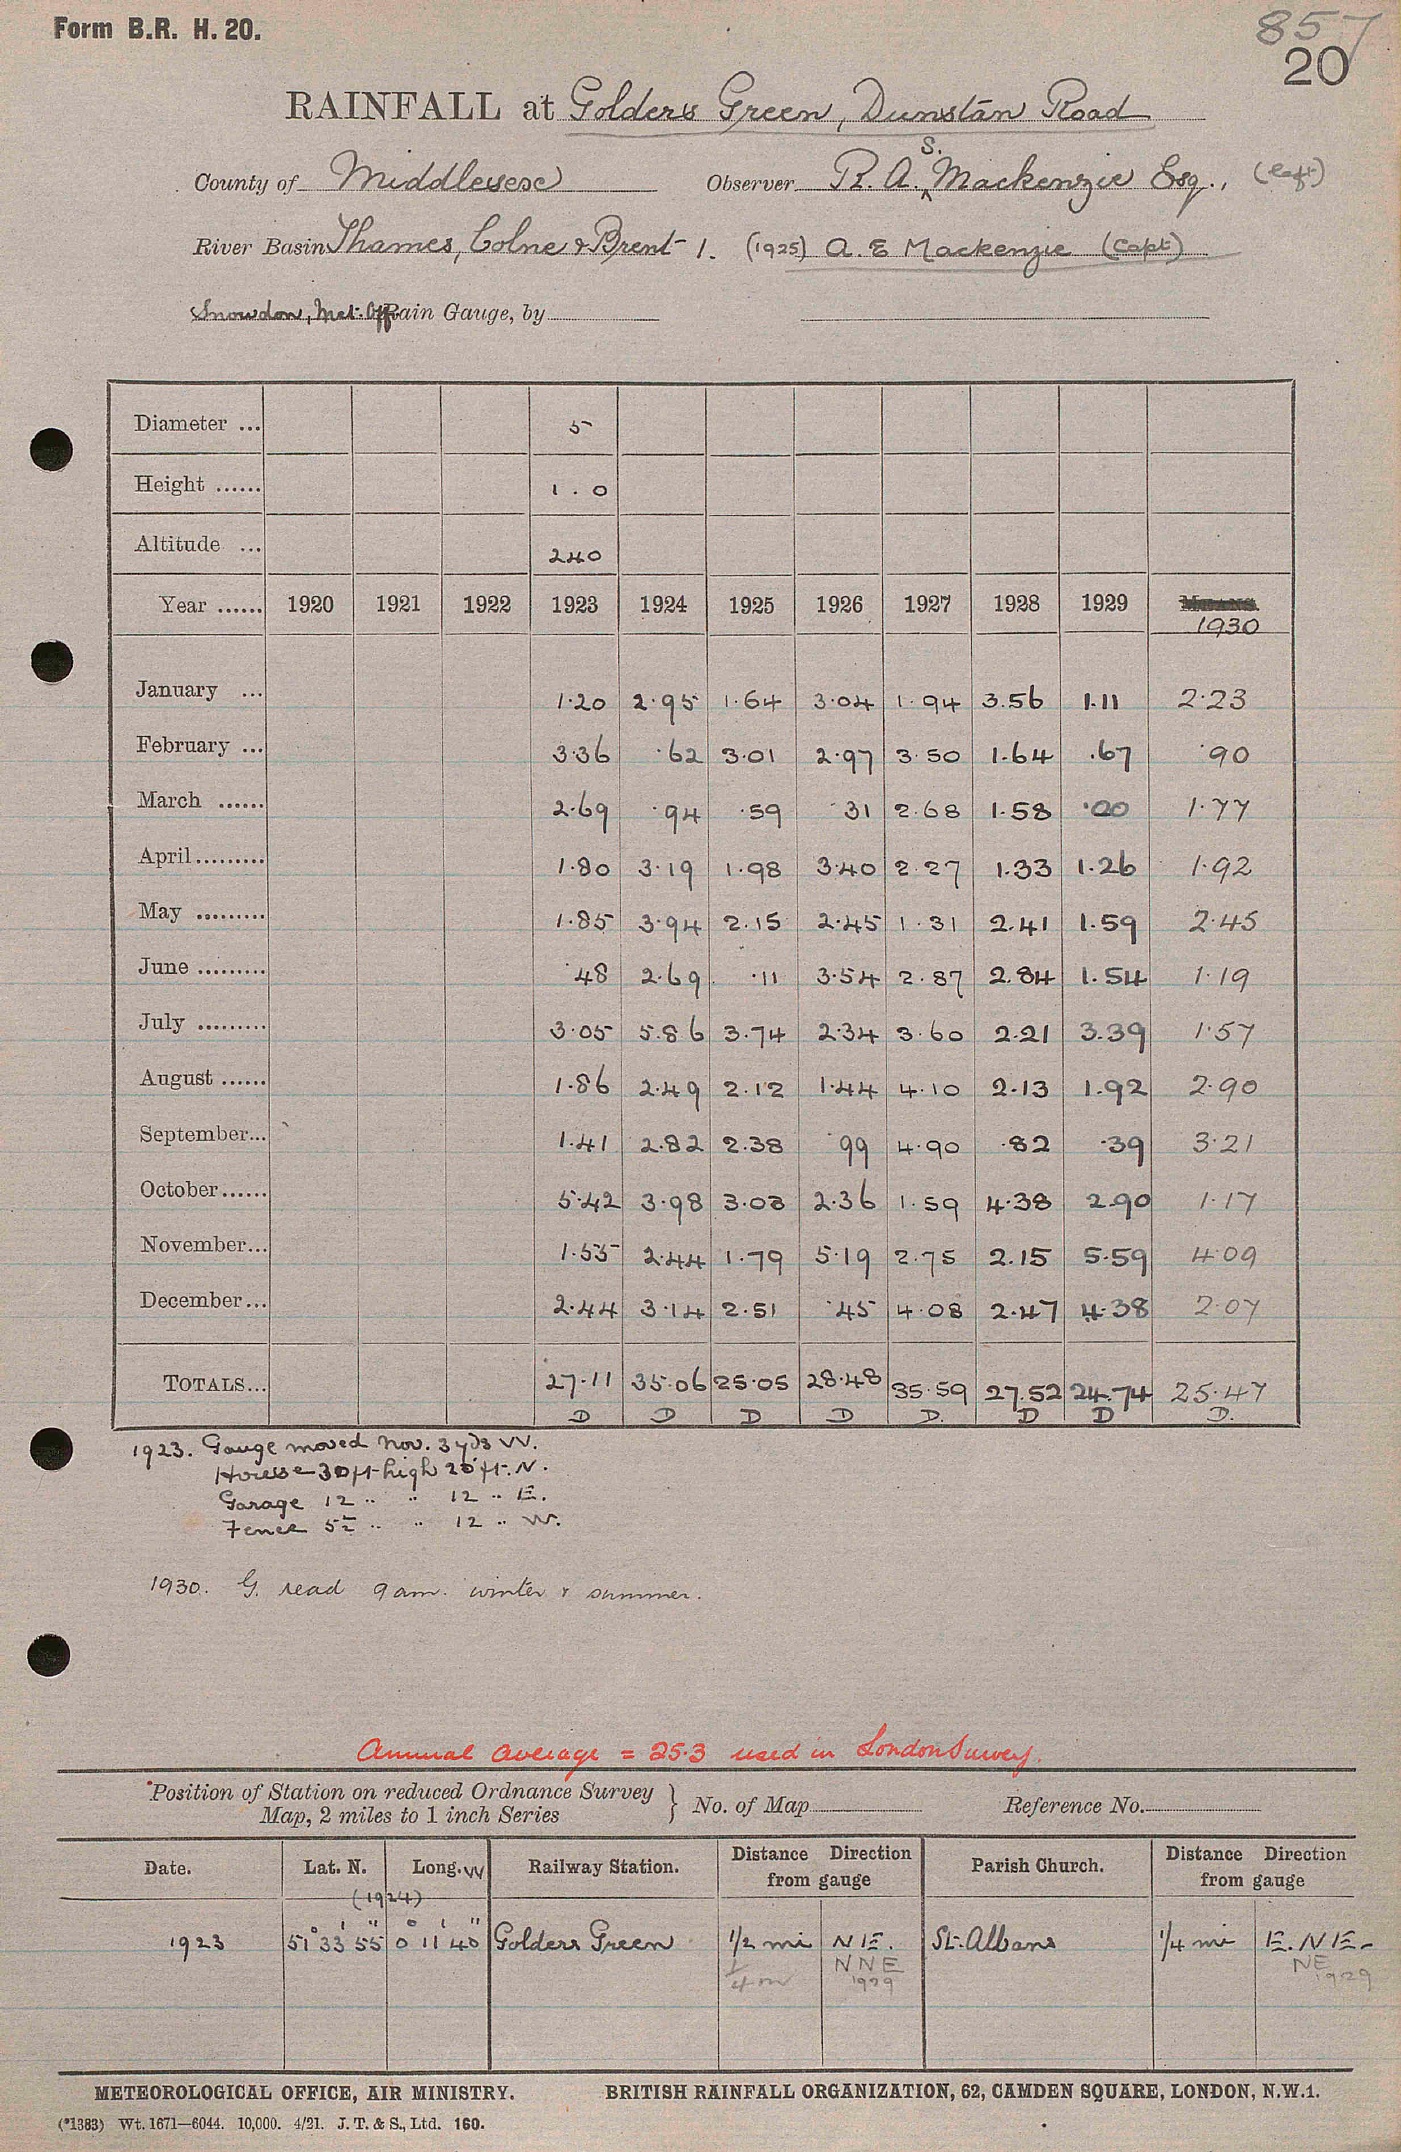 Form B.R. H. 20.
857
20
RAINFALL at Golders Green, Dunstan Road
County of Middlesex Observer R. A. S. Mackenzie Esq., (Capt)
River Basin Thames, Colne & Brent 1. (1925) A. E Mackenzie (Capt)
Snowdon, Met. Off Rain Gauge, by
Diameter ... 5
Height ...... 1 . 0
Altitude ... 240
Year ...... 1920 1921 1922 1923 1924 1925 1926 1927 1928 1929 MEANS.
1930
January ... 1.20 2.95 1.64 3.04 1.94 3.56 1.11 2.23
February ... 3.36 .62 3.01 2.97 3.50 1.64 .67 .90
March ...... 2.69 .94 .59 .31 2.68 1.58 .00 1.77
April ......... 1.80 3.19 1.98 3.40 2.27 1.33 1.26 1.92
May ......... 1.85 3.94 2.15 2.45 1.31 2.41 1.59 2.45
June ......... .48 2.69 .11 3.54 2.87 2.84 1.54 1.19
July ......... 3.05 5.86 3.74 2.34 3.60 2.21 3.39 1.57
August ...... 1.86 2.49 2.12 1.44 4.10 2.13 1.92 2.90
September... 1.41 2.82 2.38 .99 4.90 .82 .39 3.21
October...... 5.42 3.98 3.03 2.36 1.59 4.38 2.90 1.17
November... 1.55 2.44 1.79 5.19 2.75 2.15 5.59 4.09
December... 2.44 3.14 2.51 .45 4.08 2.47 4.38 2.07
TOTALS... 27.11 35.06 25.05 28.48 35.59 27.52 24.74 25.47
D D D D D. D D D.
1923. Gauge moved Nov. 3 yds W.
House 30 ft high 20 ft. N.
Garage 12 .. .. 12 .. E.
Fence 5½ .. .. 12 .. W.
1930. G. read 9 am. winter & summer.
Annual average = 25.3 used in London Survey.
Position of Station on reduced Ordnance Survey Map, 2 miles to 1 inch Series } No. of Map Reference No.
Date. Lat. N. Long. W Railway Station. Distance Direction from gauge Parish Church. Distance Direction from gauge
(1924)
1923 51° 33' 55" 0° 11' 40" Golders Green 1/2 mi N E. St. Albans 1/4 mi E. N E.
1/4 m NNE NE
1929 1929
METEOROLOGICAL OFFICE, AIR MINISTRY. BRITISH RAINFALL ORGANIZATION, 62, CAMDEN SQUARE, LONDON, N.W.1.
(*1383) Wt. 1671—6044. 10,000. 4/21. J. T. & S., Ltd. 160.